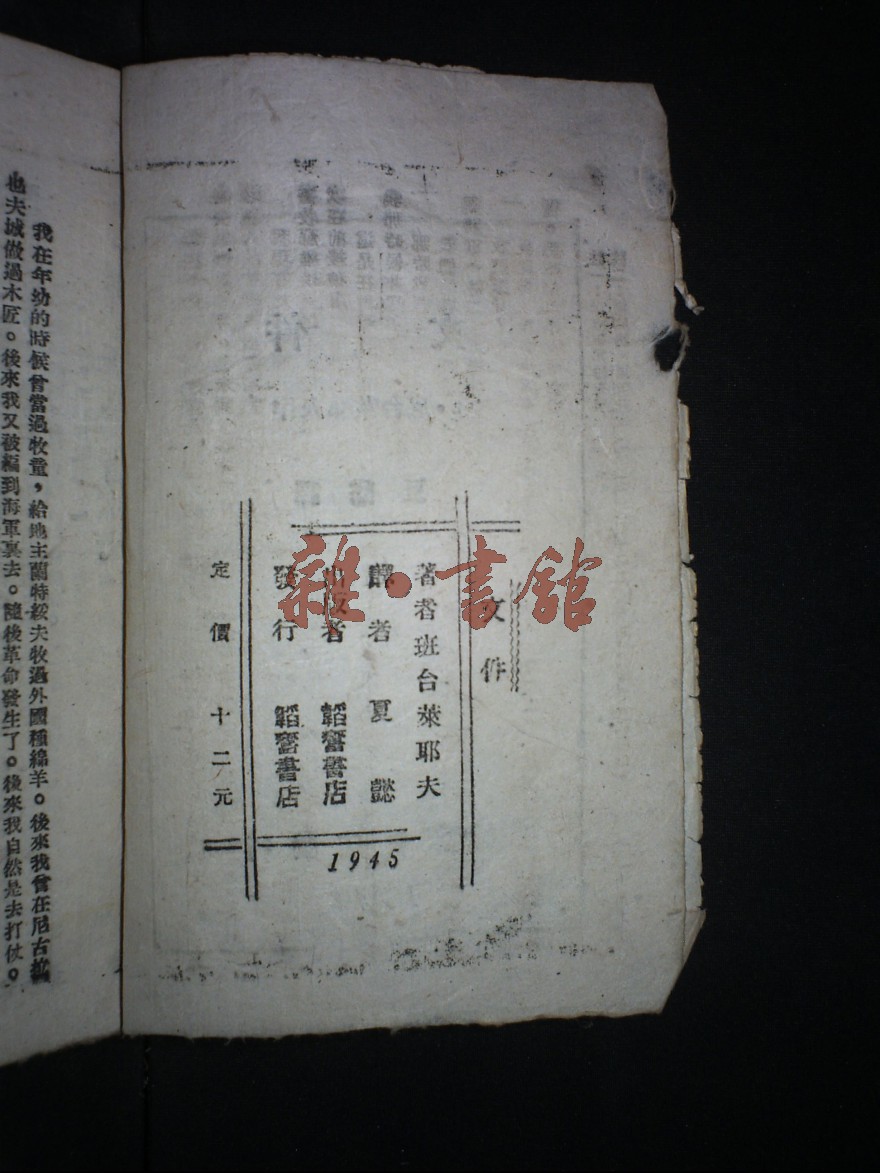 文件
著者班台萊耶夫
譯者夏懿
出版者韜奮書店
發行韜奮書店
定價十二元
1945
雜·書館
我在年幼的時候曾當過牧童，給地主蘭特綏夫牧過外國種綿羊。後來我曾在尼古拉
也夫城做過木匠。後來我又被編到海軍裏去。隨後革命發生了。後來我自然是去打仗。